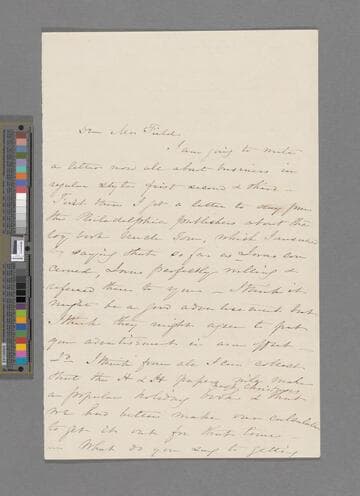 Dear Mr Fields
I am going to write
a letter now all about business in
regular style first second & third —
First then I got a letter to day from
the Philadelphia publishers about the
toy book Uncle Tom, which I answered
by saying that so far as I was con
cerned, I was perfectly willing &
referred them to you — I think it
might be a good advertisement but
I think they might agree to put
your advertisement in
2d I think from all I can collect
that the H & H papers will make
a popular holiday book & that
We had better make our calculation
to get it out for that time —
What do you say to getting